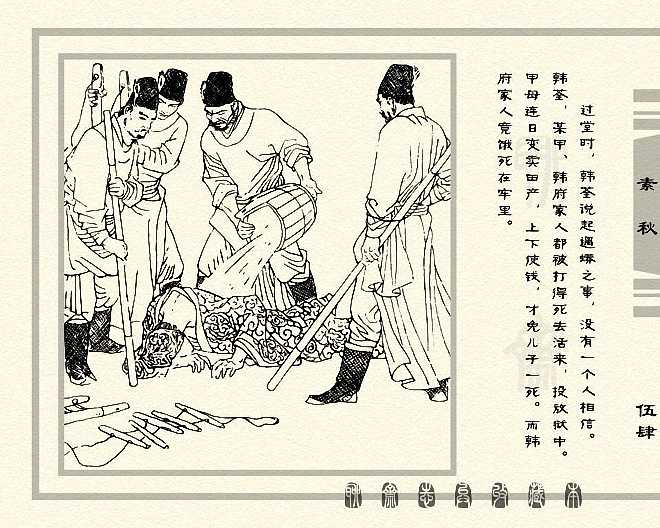 过堂时，韩荃说起遇蟒之事，没有一个人相信。
韩荃，某甲、韩府家人都被打得死去活来，投放狱中。
甲母连日变卖田产，上下使钱，才免儿子一死。而韩
府家人竟饿死在牢里。
素秋
伍肆
聊斋志异收藏本